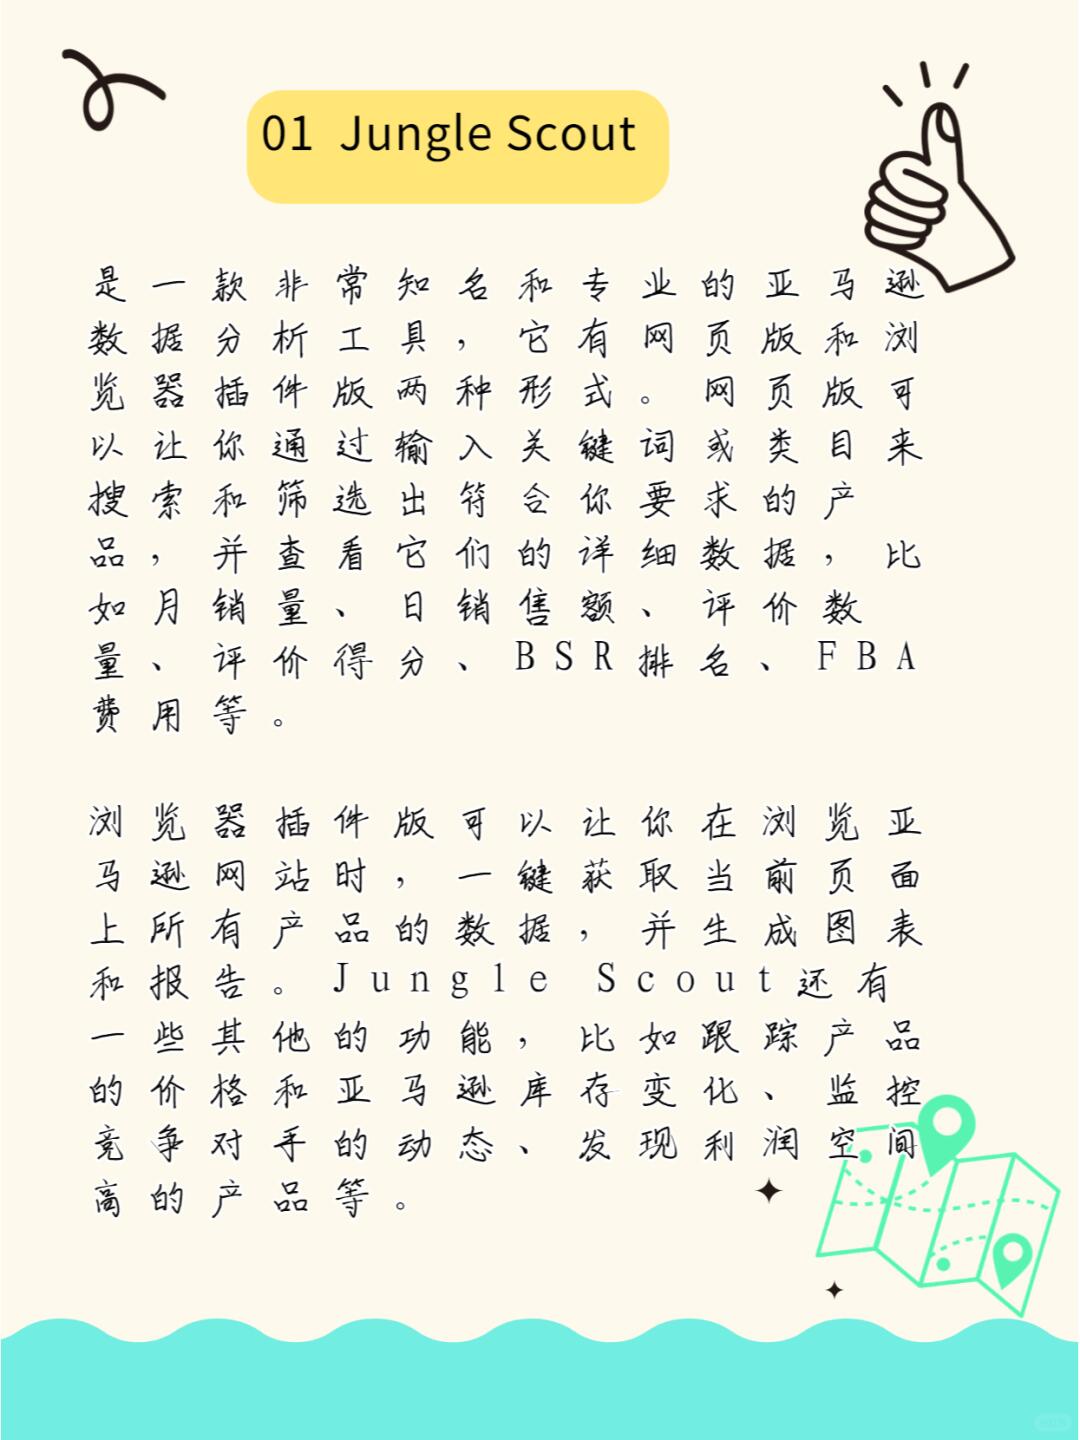 01 Jungle Scout
是一款非常知名和专业的亚马逊
数据分析工具，它有网页版和浏
览器插件版两种形式。网页版可
以让你通过输入关键词或类目来
搜索和筛选出符合你要求的产
品，并查看它们的详细数据，比
如月销量、日销售额、评价数
量、评价得分、BSR排名、FBA
费用等。
浏览器插件版可以让你在浏览亚
马逊网站时，一键获取当前页面
上所有产品的数据，并生成图表
和报告。Jungle Scout还有
一些其他的功能，比如跟踪产品
的价格和亚马逊库存变化、监控
竞争对手的动态、发现利润空间
高的产品等。